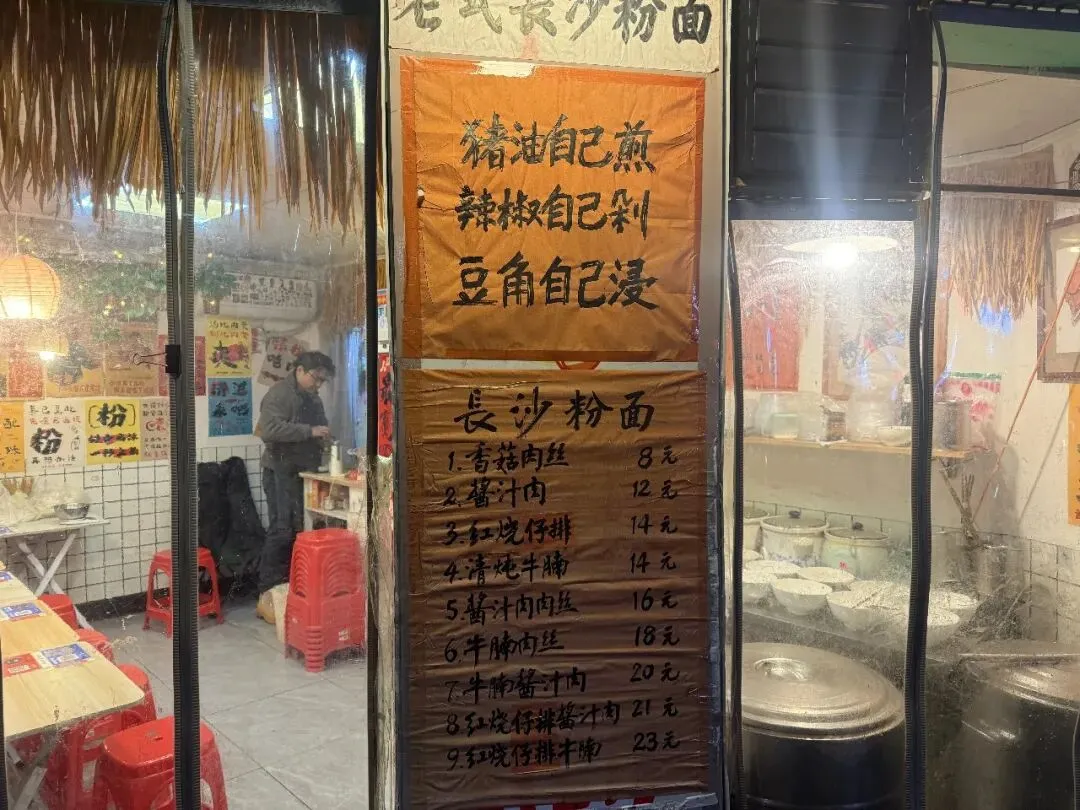 老式長沙粉面
豬油自己煎
辣椒自己剁
豆角自己浸
長沙粉面
1.香菇肉丝 8元
2.醬汁肉 12元
3.红烧仔排 14元
4.清炖牛腩 14元
5.醬汁肉肉丝 16元
6.牛腩肉丝 18元
7.牛腩醬汁肉 20元
8.红烧仔排醬汁肉 21元
9.红烧仔排牛腩 23元
爽
粉
粉